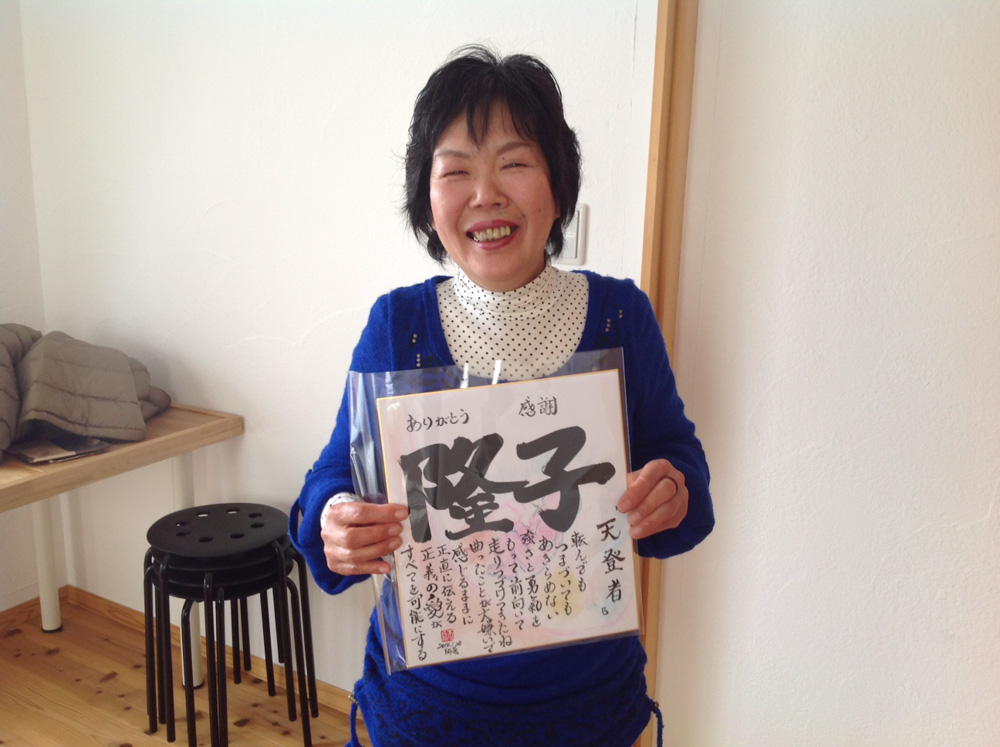 ありがとう
感謝
隆子
天登者
転んでも
つまづいても
あきらめない
強さと勇気を
もって前向いて
走りつづけてきたね
曲ったことが大嫌いで
感じるままに
正直に伝える
正義の愛が
すべてを可能にする